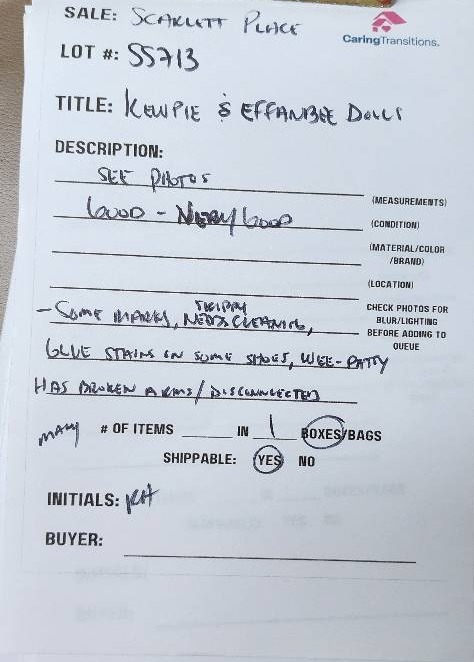 SALE: SCARLETT PLACE
CaringTransitions.
LOT #: SS713
TITLE: KEWPIE & EFFANBEE DOLLS
DESCRIPTION:
SEE PHOTOS
(MEASUREMENTS)
GOOD - VERY GOOD
(CONDITION)
(MATERIAL/COLOR
/BRAND)
(LOCATION)
- SOME MARKS, SKIPPY NEEDS CLEANING,
CHECK PHOTOS FOR
BLUR/LIGHTING
BEFORE ADDING TO
QUEUE
GLUE STAINS ON SOME SHOES, WEE-PATTY
HAS BROKEN ARMS/DISCONNECTED
MANY # OF ITEMS ____ IN 1 BOXES/BAGS
SHIPPABLE: YES NO
INITIALS: KH
BUYER: